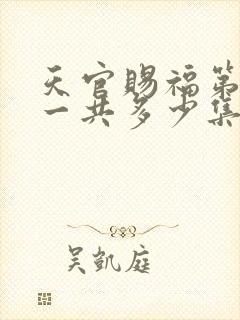 天官賜福第
一共多少集
吴凱庭